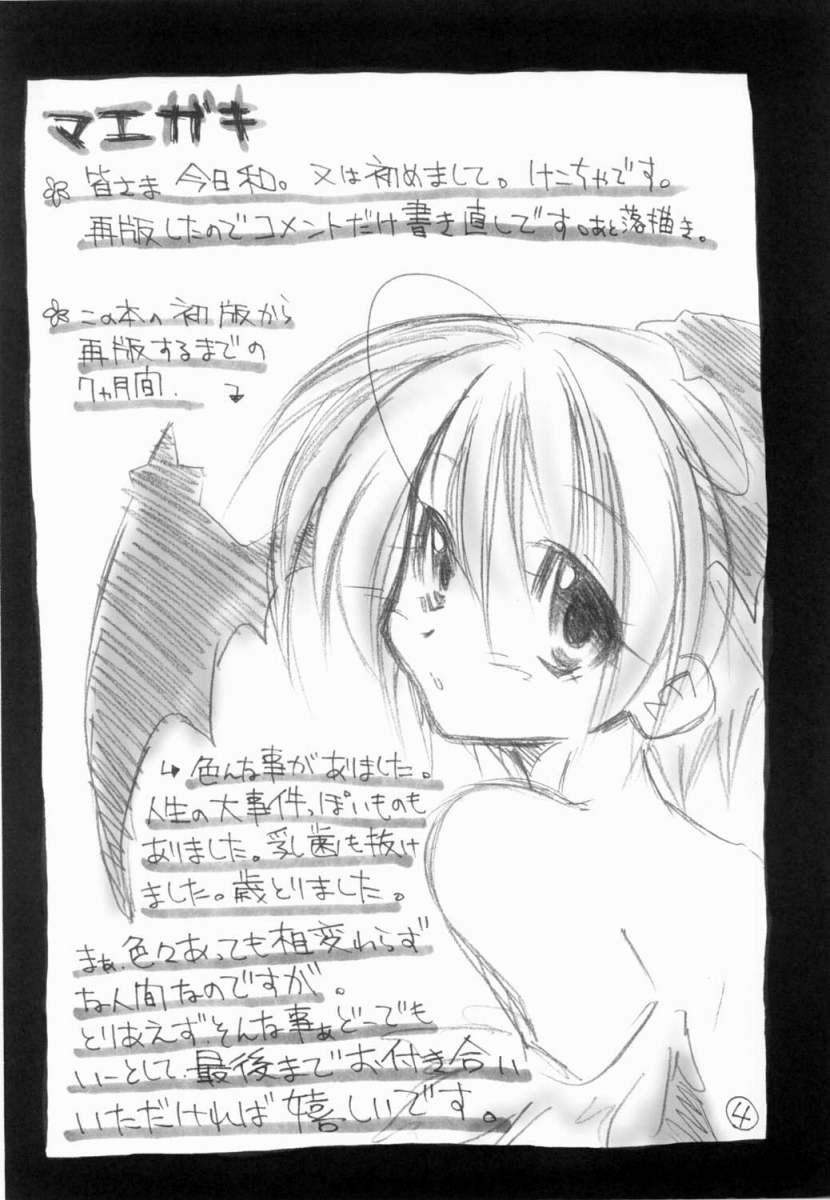 マエガキ
皆さま 今日和。又は初めまして。けこちゃです。
再版したのでコメントだけ書き直しです。あと落描き。
この本の初版から
再版するまでの
7ヵ月間.
色んな事がありました。
人生の大事件っぽいものも
ありました。乳歯も抜け
ました。歳とりました。
まぁ、色々あっても相変わらず
な人間なのですが。
とりあえず、そんな事ぁどーでも
いーとして、最後までお付き合い
いただければ嬉しいです。
4